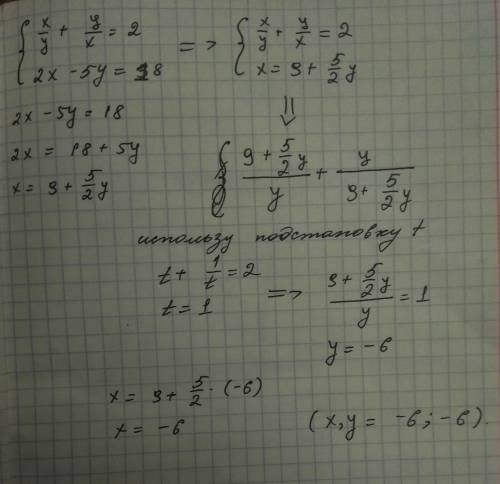 { x/y + y/x = 2 => { x/y + y/x = 2
2x - 5y = 18 x = 9 + 5/2 y
2x - 5y = 18
2x = 18 + 5y
x = 9 + 5/2 y
{ (9 + 5/2 y)/y + y/(9 + 5/2 y)
использу подстановку t
t + 1/t = 2 => (9 + 5/2 y)/y = 1
t = 1
y = -6
x = 9 + 5/2 · (-6)
x = -6
(x,y = -6; -6).